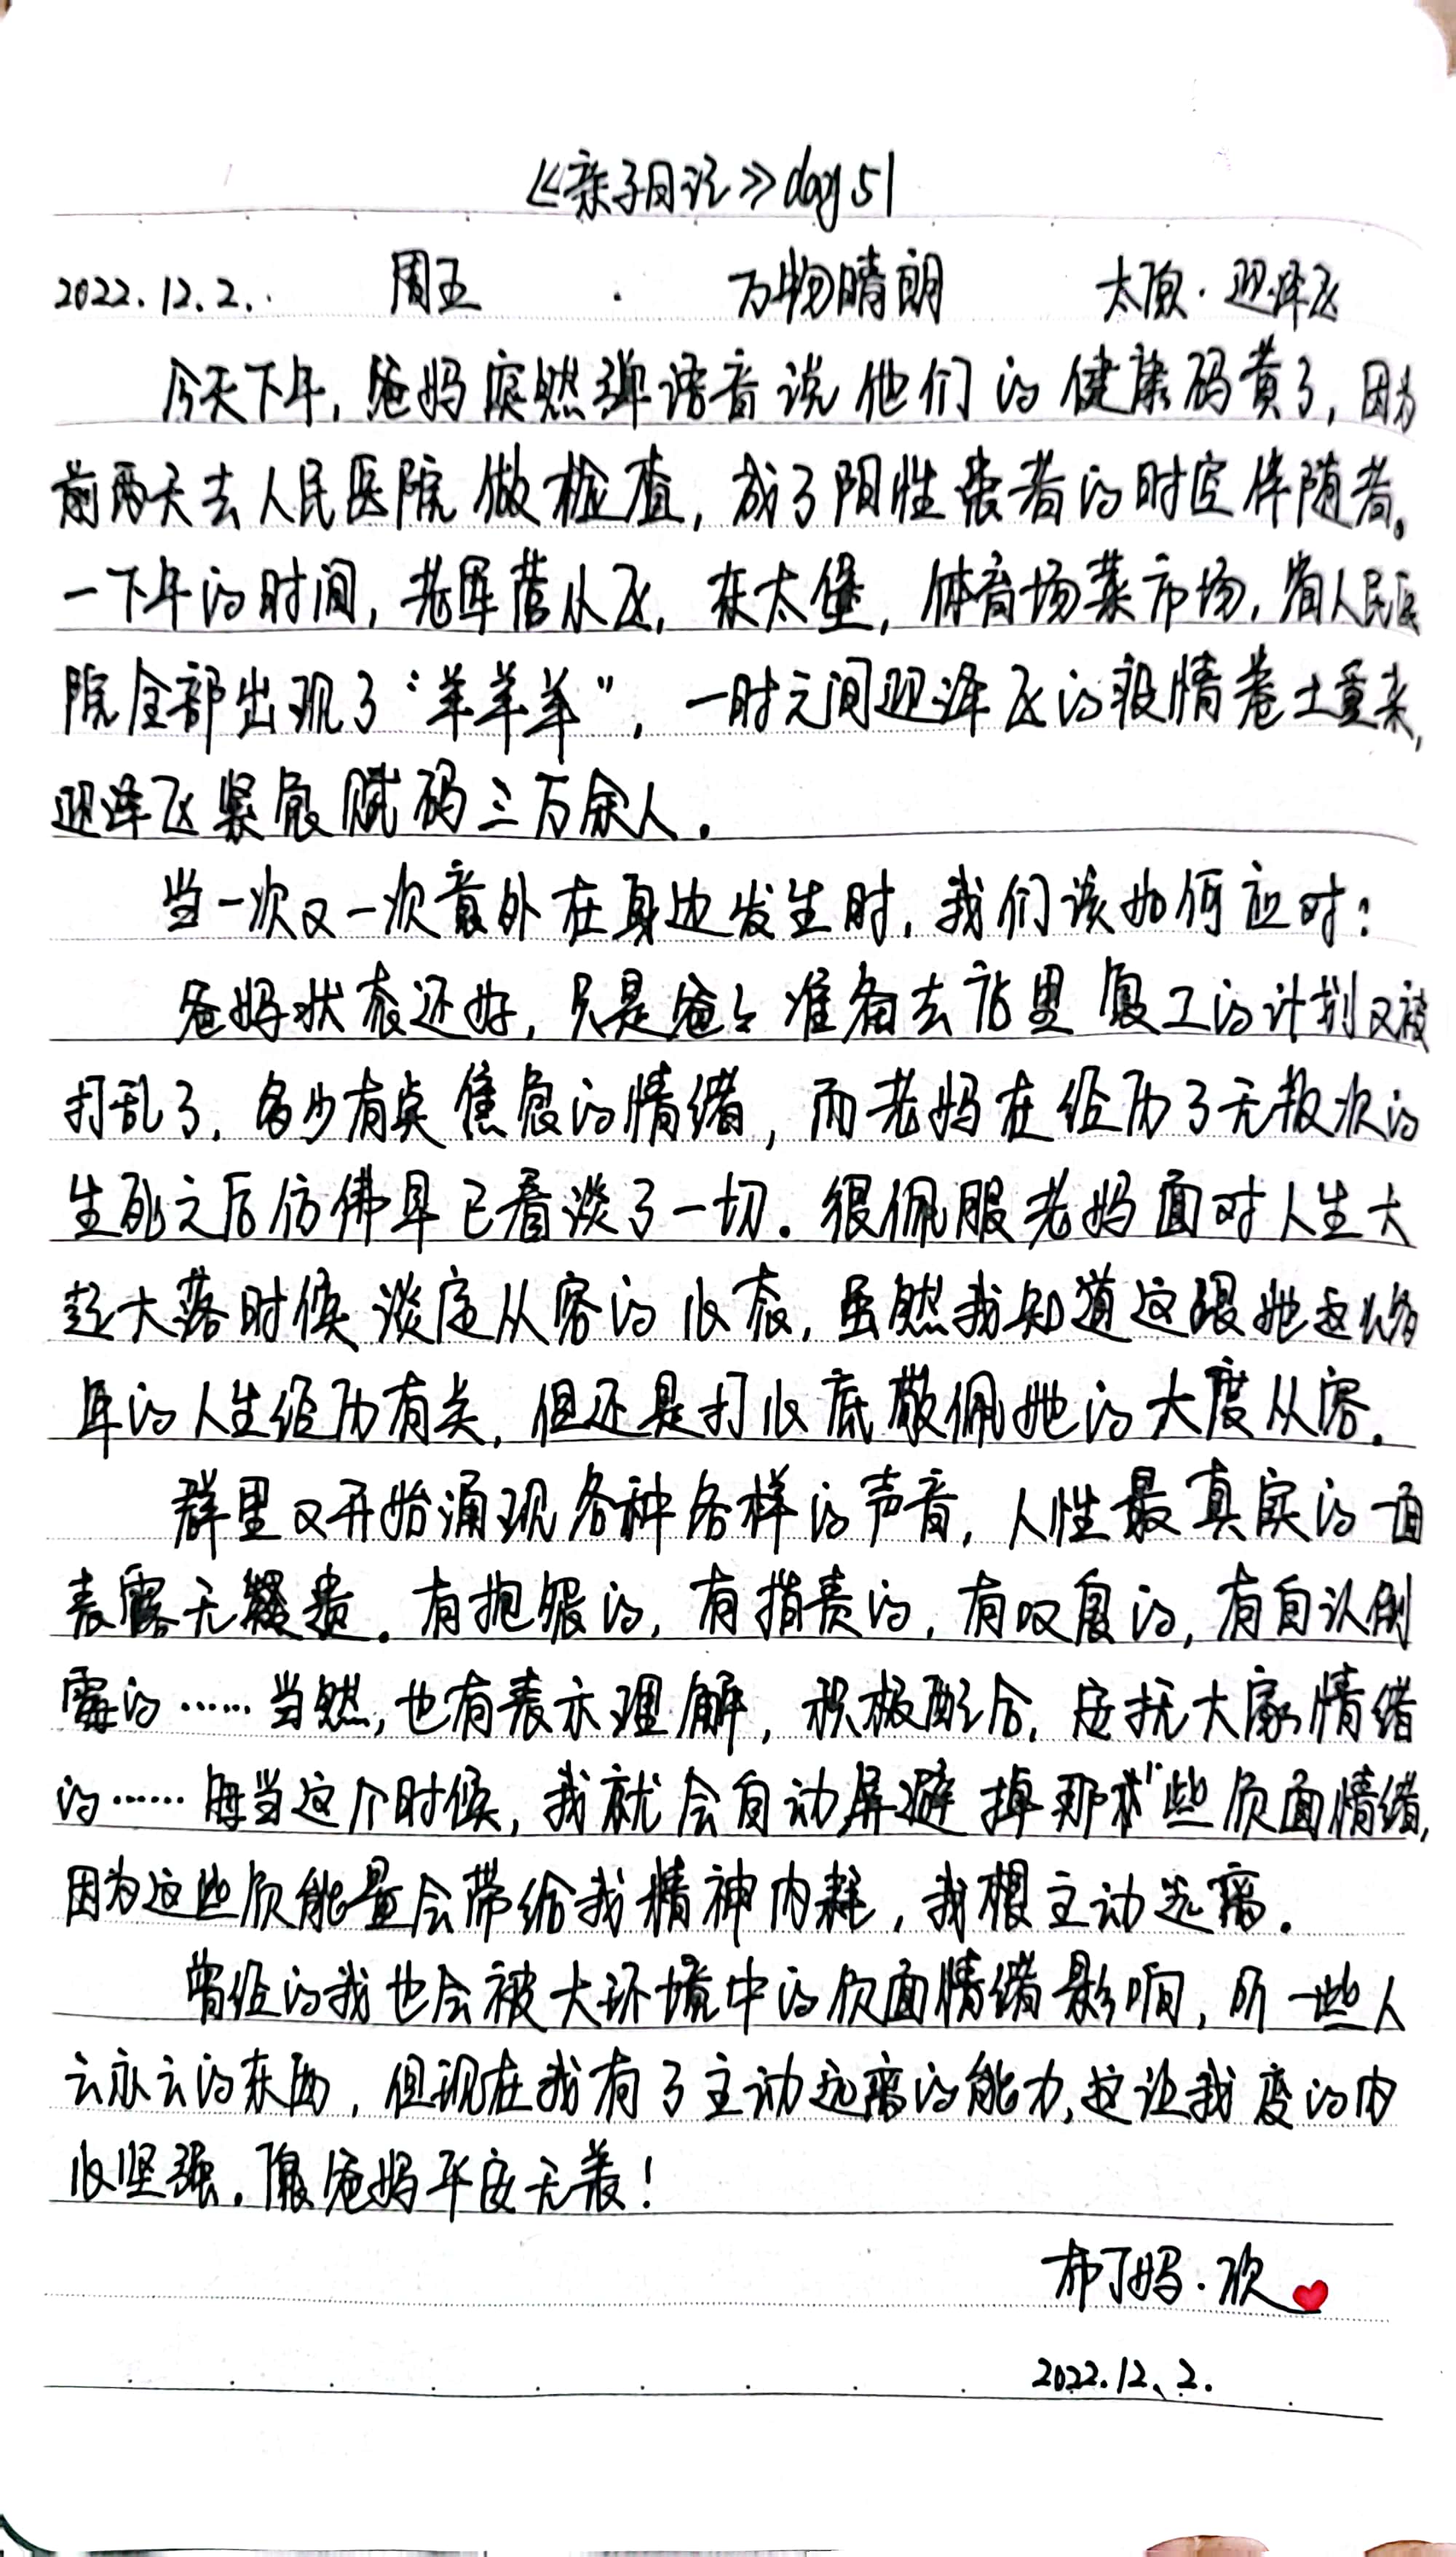 《亲子日记》day 51
2022.12.2. 周五 万物晴朗 太原·迎泽区
今天下午，爸妈突然弹语音说他们的健康码黄了，因为
前两天去人民医院做检查，成了阳性患者的时空伴随者。
一下午的时间，老军营小区，东太堡，体育场菜市场，省人民医
院全部出现了“羊羊羊”，一时之间迎泽区的疫情卷土重来，
迎泽区紧急赋码三万余人.
当一次又一次意外在身边发生时，我们该如何应对？
爸妈状态还好，只是爸爸准备去店里复工的计划又被
打乱了，多少有点焦急的情绪，而老妈在经历了无数次的
生死之后仿佛早已看淡了一切.很佩服老妈面对人生大
起大落时候淡定从容的心态，虽然我知道这跟她这么多
年的人生经历有关，但还是打心底敬佩她的大度从容.
群里又开始涌现各种各样的声音，人性最真实的一面
表露无遗.有抱怨的，有指责的，有叹息的，有自认倒
霉的……当然，也有表示理解，积极配合，安抚大家情绪
的……每当这个时候，我就会自动屏避掉那些负面情绪，
因为这些负能量会带给我精神内耗，我想主动远离.
曾经的我也会被大环境中的负面情绪影响，听一些人
云亦云的东西，但现在我有了主动远离的能力，这让我变的内
心坚强.愿爸妈平安无恙！
布丁妈·欣
2022.12、2.